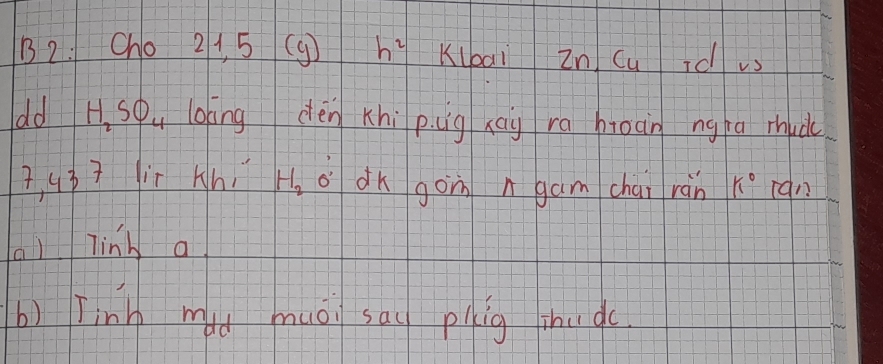 B2: Cho 21,5 (g) h² Kloai Zn, Cu td vs
dd H₂SO₄ loãng đến khi p.ứg xảy ra htoàn ngta thuđc
7,437 lít khí H₂ ở đk gồm a gam chất rắn k° tan
a) Tính a
b) Tính mdd muối sau pứg thu đc.